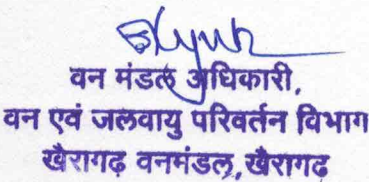 वन मंडल अधिकारी,
वन एवं जलवायु परिवर्तन विभाग
खैरागढ़ वनमंडल, खैरागढ़